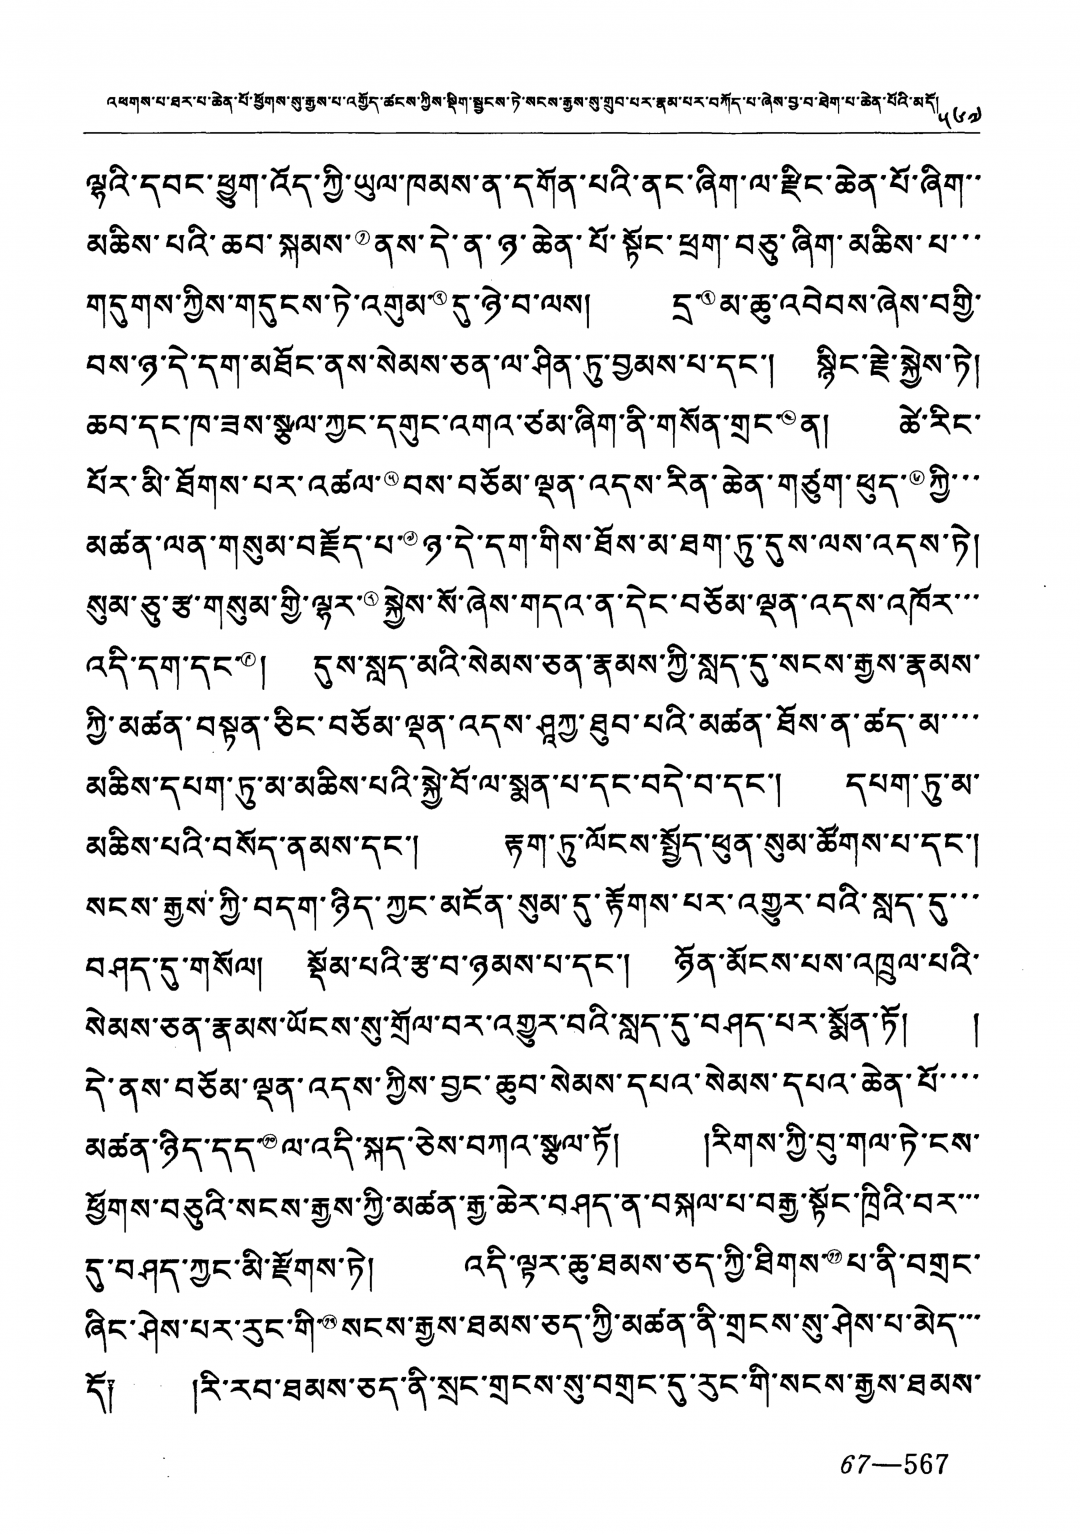 འཕགས་པ་ཐར་པ་ཆེན་པོ་ཕྱོགས་སུ་རྒྱས་པ་འགྱོད་ཚངས་ཀྱིས་སྡིག་སྦྱངས་ཏེ་སངས་རྒྱས་སུ་གྲུབ་པར་རྣམ་པར་བཀོད་པ་ཞེས་བྱ་བ་ཐེག་པ་ཆེན་པོའི་མདོ། ༥༦༧
ལྷའི་དབང་ཕྱུག་འོད་ཀྱི་ཡུལ་ཁམས་ན་དགོན་པའི་ནང་ཞིག་ལ་རྫིང་ཆེན་པོ་ཞིག་
མཆིས་པའི་ཆབ་སྐམས་① ནས་དེ་ན་ཉ་ཆེན་པོ་སྟོང་ཕྲག་བཅུ་ཞིག་མཆིས་པ་
གདུགས་ཀྱིས་གདུངས་ཏེ་འགུམ་② དུ་ཉེ་བ་ལས། དྲ་③ མ་ཆུ་འབེབས་ཞེས་བགྱི་
བས་ཉ་དེ་དག་མཐོང་ནས་སེམས་ཅན་ལ་ཤིན་ཏུ་བྱམས་པ་དང་། སྙིང་རྗེ་སྐྱེས་ཏེ།
ཆབ་དང་ཁ་ཟས་སྩལ་ཀྱང་དགུང་འགའ་ཙམ་ཞིག་ནི་གསོན་གྲང་④ ན། ཚེ་རིང་
པོར་མི་ཐོགས་པར་འཚལ་⑤ བས་བཅོམ་ལྡན་འདས་རིན་ཆེན་གཙུག་ཕུད་⑥ ཀྱི་
མཚན་ལན་གསུམ་བརྗོད་པ་⑦ ཉ་དེ་དག་གིས་ཐོས་མ་ཐག་ཏུ་དུས་ལས་འདས་ཏེ།
སུམ་ཅུ་རྩ་གསུམ་གྱི་ལྷར་⑧ སྐྱེས་སོ་ཞེས་གདའ་ན་དེང་བཅོམ་ལྡན་འདས་འཁོར་
འདི་དག་དང་⑨། དུས་སླད་མའི་སེམས་ཅན་རྣམས་ཀྱི་སླད་དུ་སངས་རྒྱས་རྣམས་
ཀྱི་མཚན་བསྟན་ཅིང་བཅོམ་ལྡན་འདས་ཤཱཀྱ་ཐུབ་པའི་མཚན་ཐོས་ན་ཚད་མ་
མཆིས་དཔག་ཏུ་མ་མཆིས་པའི་སྐྱེ་བོ་ལ་སྨན་པ་དང་བདེ་བ་དང་། དཔག་ཏུ་མ་
མཆིས་པའི་བསོད་ནམས་དང་། རྟག་ཏུ་ལོངས་སྤྱོད་ཕུན་སུམ་ཚོགས་པ་དང་།
སངས་རྒྱས་ཀྱི་བདག་ཉིད་ཀྱང་མངོན་སུམ་དུ་རྟོགས་པར་འགྱུར་བའི་སླད་དུ་
བཤད་དུ་གསོལ། སྡོམ་པའི་རྩ་བ་ཉམས་པ་དང་། ཉོན་མོངས་པས་འཁྲུལ་པའི་
སེམས་ཅན་རྣམས་ཡོངས་སུ་གྲོལ་བར་འགྱུར་བའི་སླད་དུ་བཤད་པར་སྨོན་ཏོ། །
དེ་ནས་བཅོམ་ལྡན་འདས་ཀྱིས་བྱང་ཆུབ་སེམས་དཔའ་སེམས་དཔའ་ཆེན་པོ་
མཚན་ཉིད་དད་⑩ ལ་འདི་སྐད་ཅེས་བཀའ་སྩལ་ཏོ། །རིགས་ཀྱི་བུ་གལ་ཏེ་ངས་
ཕྱོགས་བཅུའི་སངས་རྒྱས་ཀྱི་མཚན་རྒྱ་ཆེར་བཤད་ན་བསྐལ་པ་བརྒྱ་སྟོང་ཁྲིའི་བར་
དུ་བཤད་ཀྱང་མི་རྫོགས་ཏེ། འདི་ལྟར་ཆུ་ཐམས་ཅད་ཀྱི་ཐིགས་⑪ པ་ནི་བགྲང་
ཞིང་ཤེས་པར་རུང་གི་⑫ སངས་རྒྱས་ཐམས་ཅད་ཀྱི་མཚན་ནི་གྲངས་སུ་ཤེས་པ་མེད་
དོ། །རི་རབ་ཐམས་ཅད་ནི་སྲང་གྲངས་སུ་བགྲང་དུ་རུང་གི་སངས་རྒྱས་ཐམས་
67—567